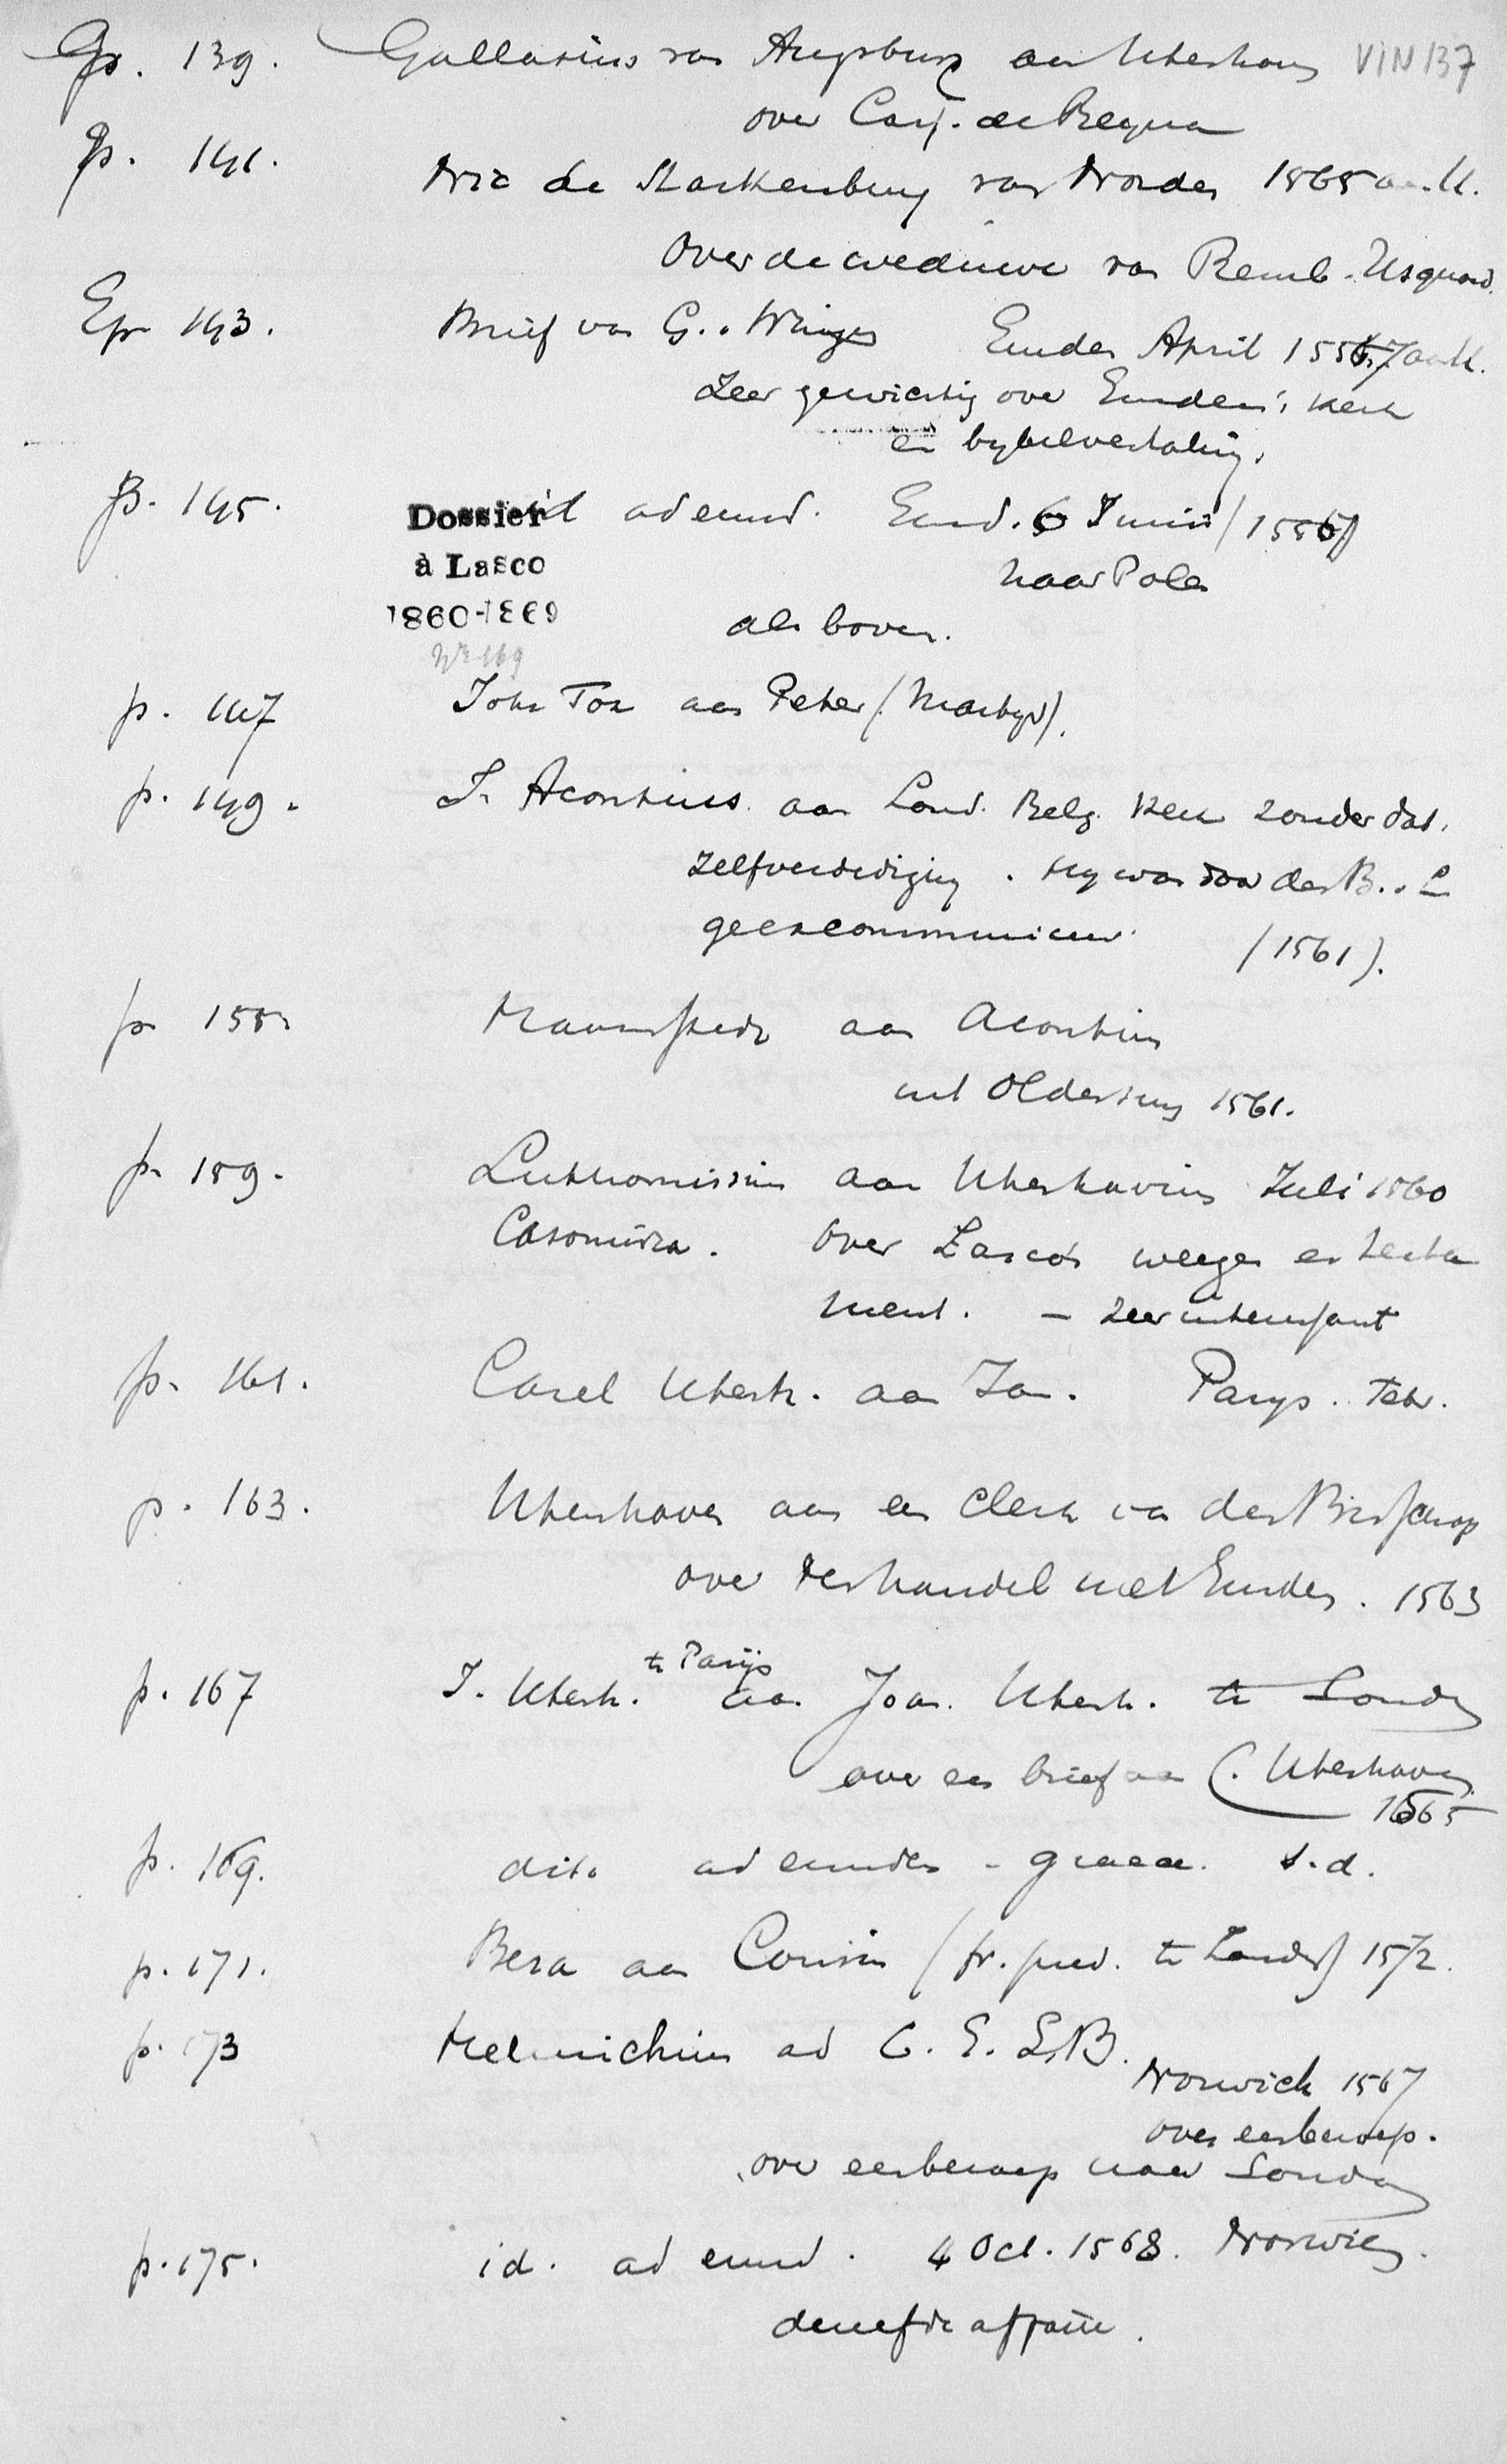 Ep. 139. Gallasius van Augsburg aan Utenhoven VIN 137
over Casp. de Reyna
Ep. 141. Nic de Starkenburg van Norden 1565 aan U.
Over de weduwe van Remb.
Ep 143. Brief van G. Wingen Emden April 1556/7 aan U.
Zeer gewichtig over Emden's kerk
en bybelvertaling.
p. 145. id ad eund. Emd. 6 Junii / 1556/7
Dossier
à Lasco
1860-1869
naar Polen
als boven.
Nr 169
p. 147 John Fox aan Peter (Martyr).
p. 149. J. Acontius aan Lond. Belg. Kerk zonder dat.
zelfverdediging. Hy was door den B. v. L
geexcommunicieerd. (1561).
p 155 Haemstede aan Acontius
uit Oldersum 1561.
p. 159. Lutthomirsius aan Utenhovius Juli 1560
Casomira. Over Lasco's weezen en testa
ment. - zeer interessant
p. 161. Carel Utenh. aan Jan. Parys. Feb.
p. 163. Utenhoven aan een Clerk van den Bisschop
over den handel met Emden. 1563
p. 167 J. Utenh. te Parijs aan Joan. Utenh. te Londen
over een brief aan C. Utenhoven
1565
p. 169. dito ad eundem - graece. s.d.
p. 171. Beza aan Cousin (fr. pred. te Londen) 1572.
p. 173 Helmichius ad C. E. L. B.
Norwich 1567
over een beroep.
over een beroep naar Londen
p. 175. id. ad eund. 4 Oct. 1568. Norwich.
denzelfde affaire.